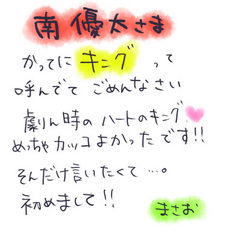 南 優太さま
かってに キング って
呼んでて ごめんなさい
劇ん時の ハートのキング
めっちゃカッコよかったです!!
そんだけ言いたくて…。
初めまして!!
まさお